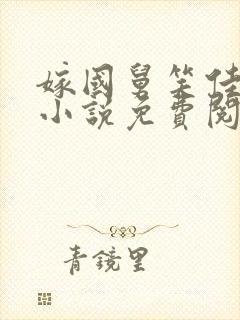 嫁國舅笑佳
小說免費閱
青鏡里